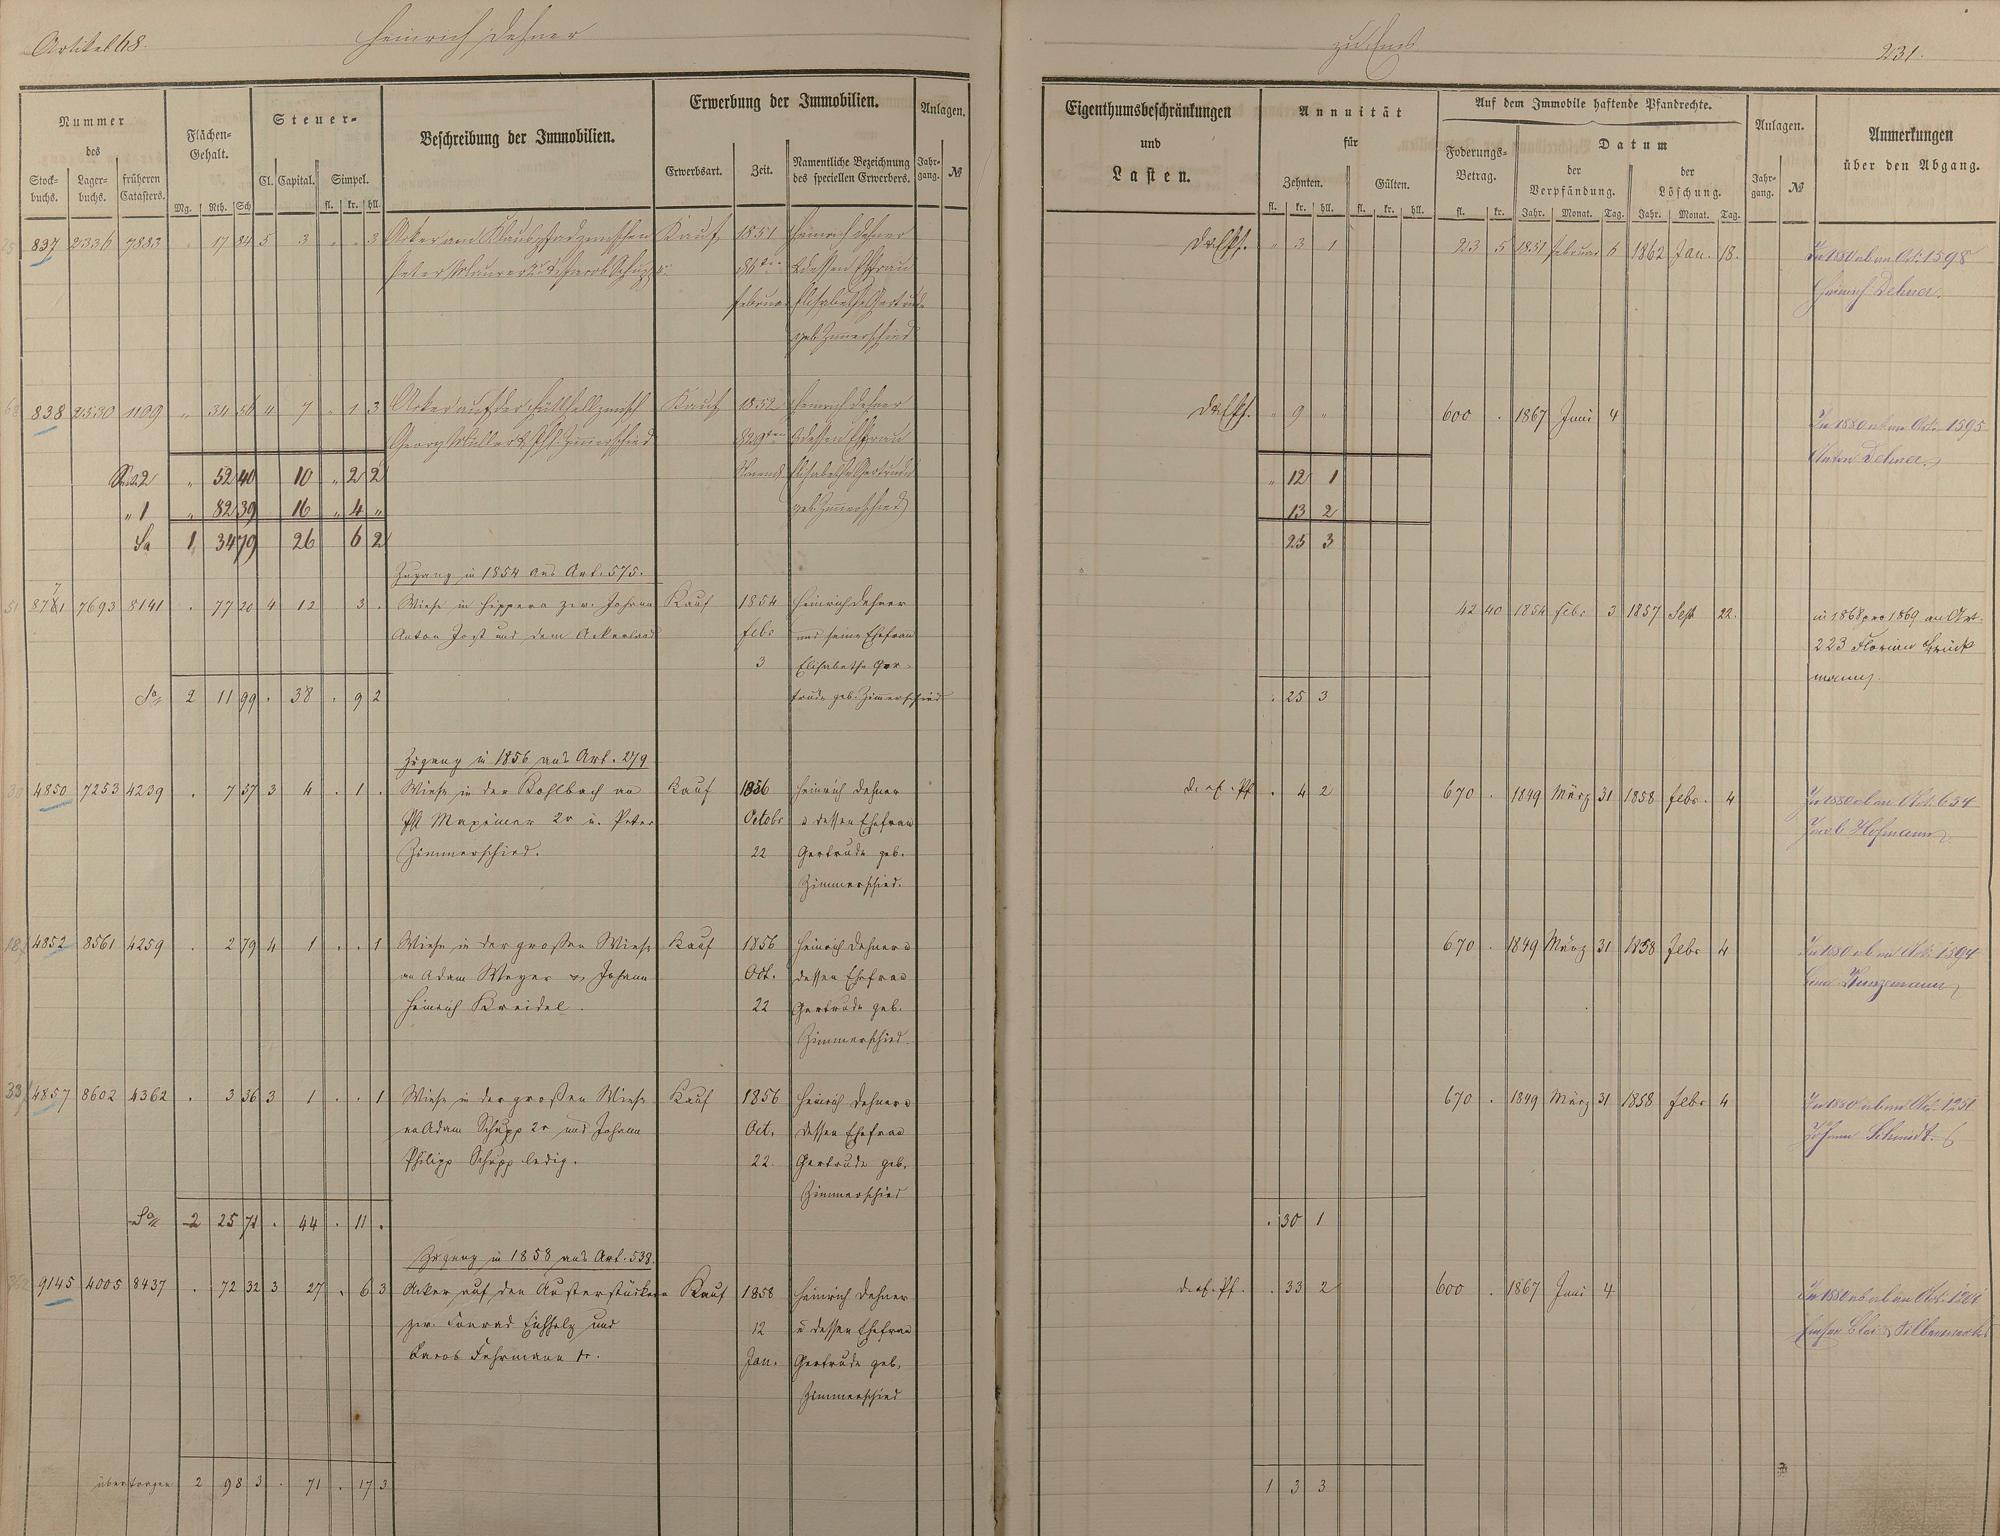 Artikel 68.
Heinrich Dehner
Nummer
des
Stock-
buchs.
Lager-
buchs.
früheren
Catasters.
Flächen-
Gehalt.
Mg. Rth. Sch
Steuer-
Cl. Capital. Simpel.
fl. kr. hll.
Beschreibung der Immobilien.
Erwerbung der Immobilien.
Erwerbsart. Zeit.
Namentliche Bezeichnung
des speciellen Erwerbers.
Anlagen.
Jahr-
gang. №
837 2336 7883 . 17 84 5 3 . . 3 Acker am Klauspfad zwischen Kauf 1851 Heinrich Dehner
Peter Maurer
u dessen Ehfrau
Februar Elisabetha Gertrude
geb. Zimerschied
838 2530 1109 " 34 56 4 7 " 1 3 Acker auf der zwisch Kauf 1852 Heinrich Dehner
Georg Müller & Zimerschied u dessen Ehfrau
Elisabetha Gertrude
geb. Zimerschied
" 52 40 10 " 2 2
" 1 " 82 39 16 " 4 "
Sa 1 34 79 26 6 2
Zugang in 1854 aus Art. 575.
7693 8141 . 77 20 4 12 3 . Wiese in Hippera zw. Johann Kauf 1854 Heinrich Dehner
Anton Jost und dem Ackerland Febr und seine Ehefrau
3 Elisabetha Ger-
Sa 2 11 99 . 38 . 9 2 trude geb. Zimerschied
Zugang in 1856 aus Art. 279
4850 7253 4239 . 7 57 3 4 . 1 . Wiese in der Kohlbach an Kauf 1856 Heinrich Dehner
Pht Maximer 2r u. Peter Octobr u dessen Ehefrau
Zimmerschied. 22 Gertrude geb.
Zimmerschied.
4852 8561 4259 . 2 79 4 1 . . 1 Wiese in der großen Wiese Kauf 1856 Heinrich Dehner u
an Adam Weyer u. Johann Oct. dessen Ehefrau
Heinrich Kreidel. 22 Gertrude geb.
Zimmerschied.
4857 8602 4362 . 3 36 3 1 . . 1 Wiese in der großen Wiese Kauf 1856 Heinrich Dehner u
an Adam Schupp 2r und Johann Oct. dessen Ehefrau
Philipp Schupp ledig. 22 Gertrude geb.
Zimmerschied
Sa 2 25 71 . 44 . 11 .
Zugang in 1858 aus Art. 538.
9145 4005 8437 . 72 32 3 27 . 6 3 Acker auf den Austerstücken Kauf 1858 Heinrich Dehner
zw. Conrad Eichholz und 12 u dessen Ehefrau
Jacob Fehrmann 1r. Jan. Gertrude geb.
Zimmerschied
übertragen 2 98 3 . 71 . 17 3
zu Ems
231.
Eigenthumsbeschränkungen
und
Lasten.
Annuität
für
Zehnten. Gülten.
fl. kr. hll. fl. kr. hll.
Auf dem Immobile haftende Pfandrechte.
Foderungs-
Betrag.
fl. kr.
Datum
der
Verpfändung.
Jahr. Monat. Tag.
der
Löschung.
Jahr. Monat. Tag.
Anlagen.
Jahr-
gang. №
Anmerkungen
über den Abgang.
" 3 1 23 5 1851 Februar 6 1862 Jan. 18. In 1880 ab an Art. 1598
Heinrich Dehner.
" 9 " 600 . 1867 Juni 4 In 1880 ab an Art. 1595
Anton Dehner.
" 12 1
13 2
25 3
42 40 1854 Febr 3 1857 Sept 22. in 1868 pro 1869 an Art.
223 Florian Brück
mann.
. 25 3
. 4 2 670 . 1849 März 31 1858 Febr. 4 In 1880 ab an Art. 654
Jacob Hofmann
670 . 1849 März 31 1858 Febr 4 In 1880 ab an Art. 1594
Kunzmann
670 . 1849 März 31 1858 Febr 4 In 1880 ab an Art. 1251
Johann Schmidt.
. 30 1
. 33 2 600 . 1867 Juni 4 In 1880 ab an Art. 1201
Emser Blei & Silberwerke
1 3 3